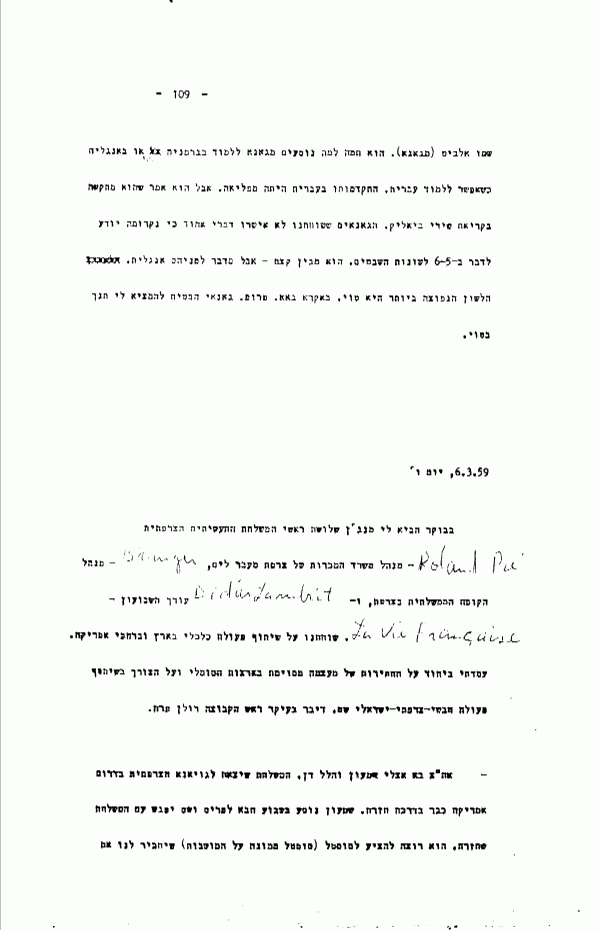 - 109 -
שמו אלביס (מגאנא). הוא תמה למה נוסעים מגאנא ללמוד בגרמניה או באנגליה
כשאפשר ללמוד עברית. התקדמותו בעברית היתה מפליאה. אבל הוא אמר שהוא מתקשה
בקריאת שירי ביאליק. הגאנאים ששוחחנו לא אישרו דברי אהוד כי נקרומה יודע
לדבר ב-6-5 לשונות השבטים. הוא מבין קצת - אבל מדבר לפניהם אנגלית.
הלשון הנפוצה ביותר היא טוי. באקרא גאא. פרופ. גאנאי הבטיח להמציא לי תנך
בטוי.
6.3.59, יום ו'
בבוקר הביא לי מנג'ן שלושה ראשי המשלחת התעשיתית הצרפתית
Roland Pré - מנהל משרד המכרות של צרפת מעבר לים, - מנהל
הקופה הממשלתית בצרפת, ו- עורך השבועון -
La Vie Française. שוחחנו על שיתוף פעולה כלכלי בארץ וברחבי אפריקה.
עמדתי ביחוד על החתירות של מעצמה מסוימת בארצות הסומלי ועל הצורך בשיתוף
פעולה חבשי-צרפתי-ישראלי שם. דיבר בעיקר ראש הקבוצה רולן פרה.
- אח"צ בא אצלי שמעון והלל דן. המשלחת שיצאה לגויאנא הצרפתית בדרום
אמריקה כבר בדרכה חזרה. שמעון נוסע בשבוע הבא לפריס ושם יפגש עם המשלחת
שחזרה. הוא רוצה להציע לסוסטל (סוסטל ממונה על המושבות) שיחכיר לנו את